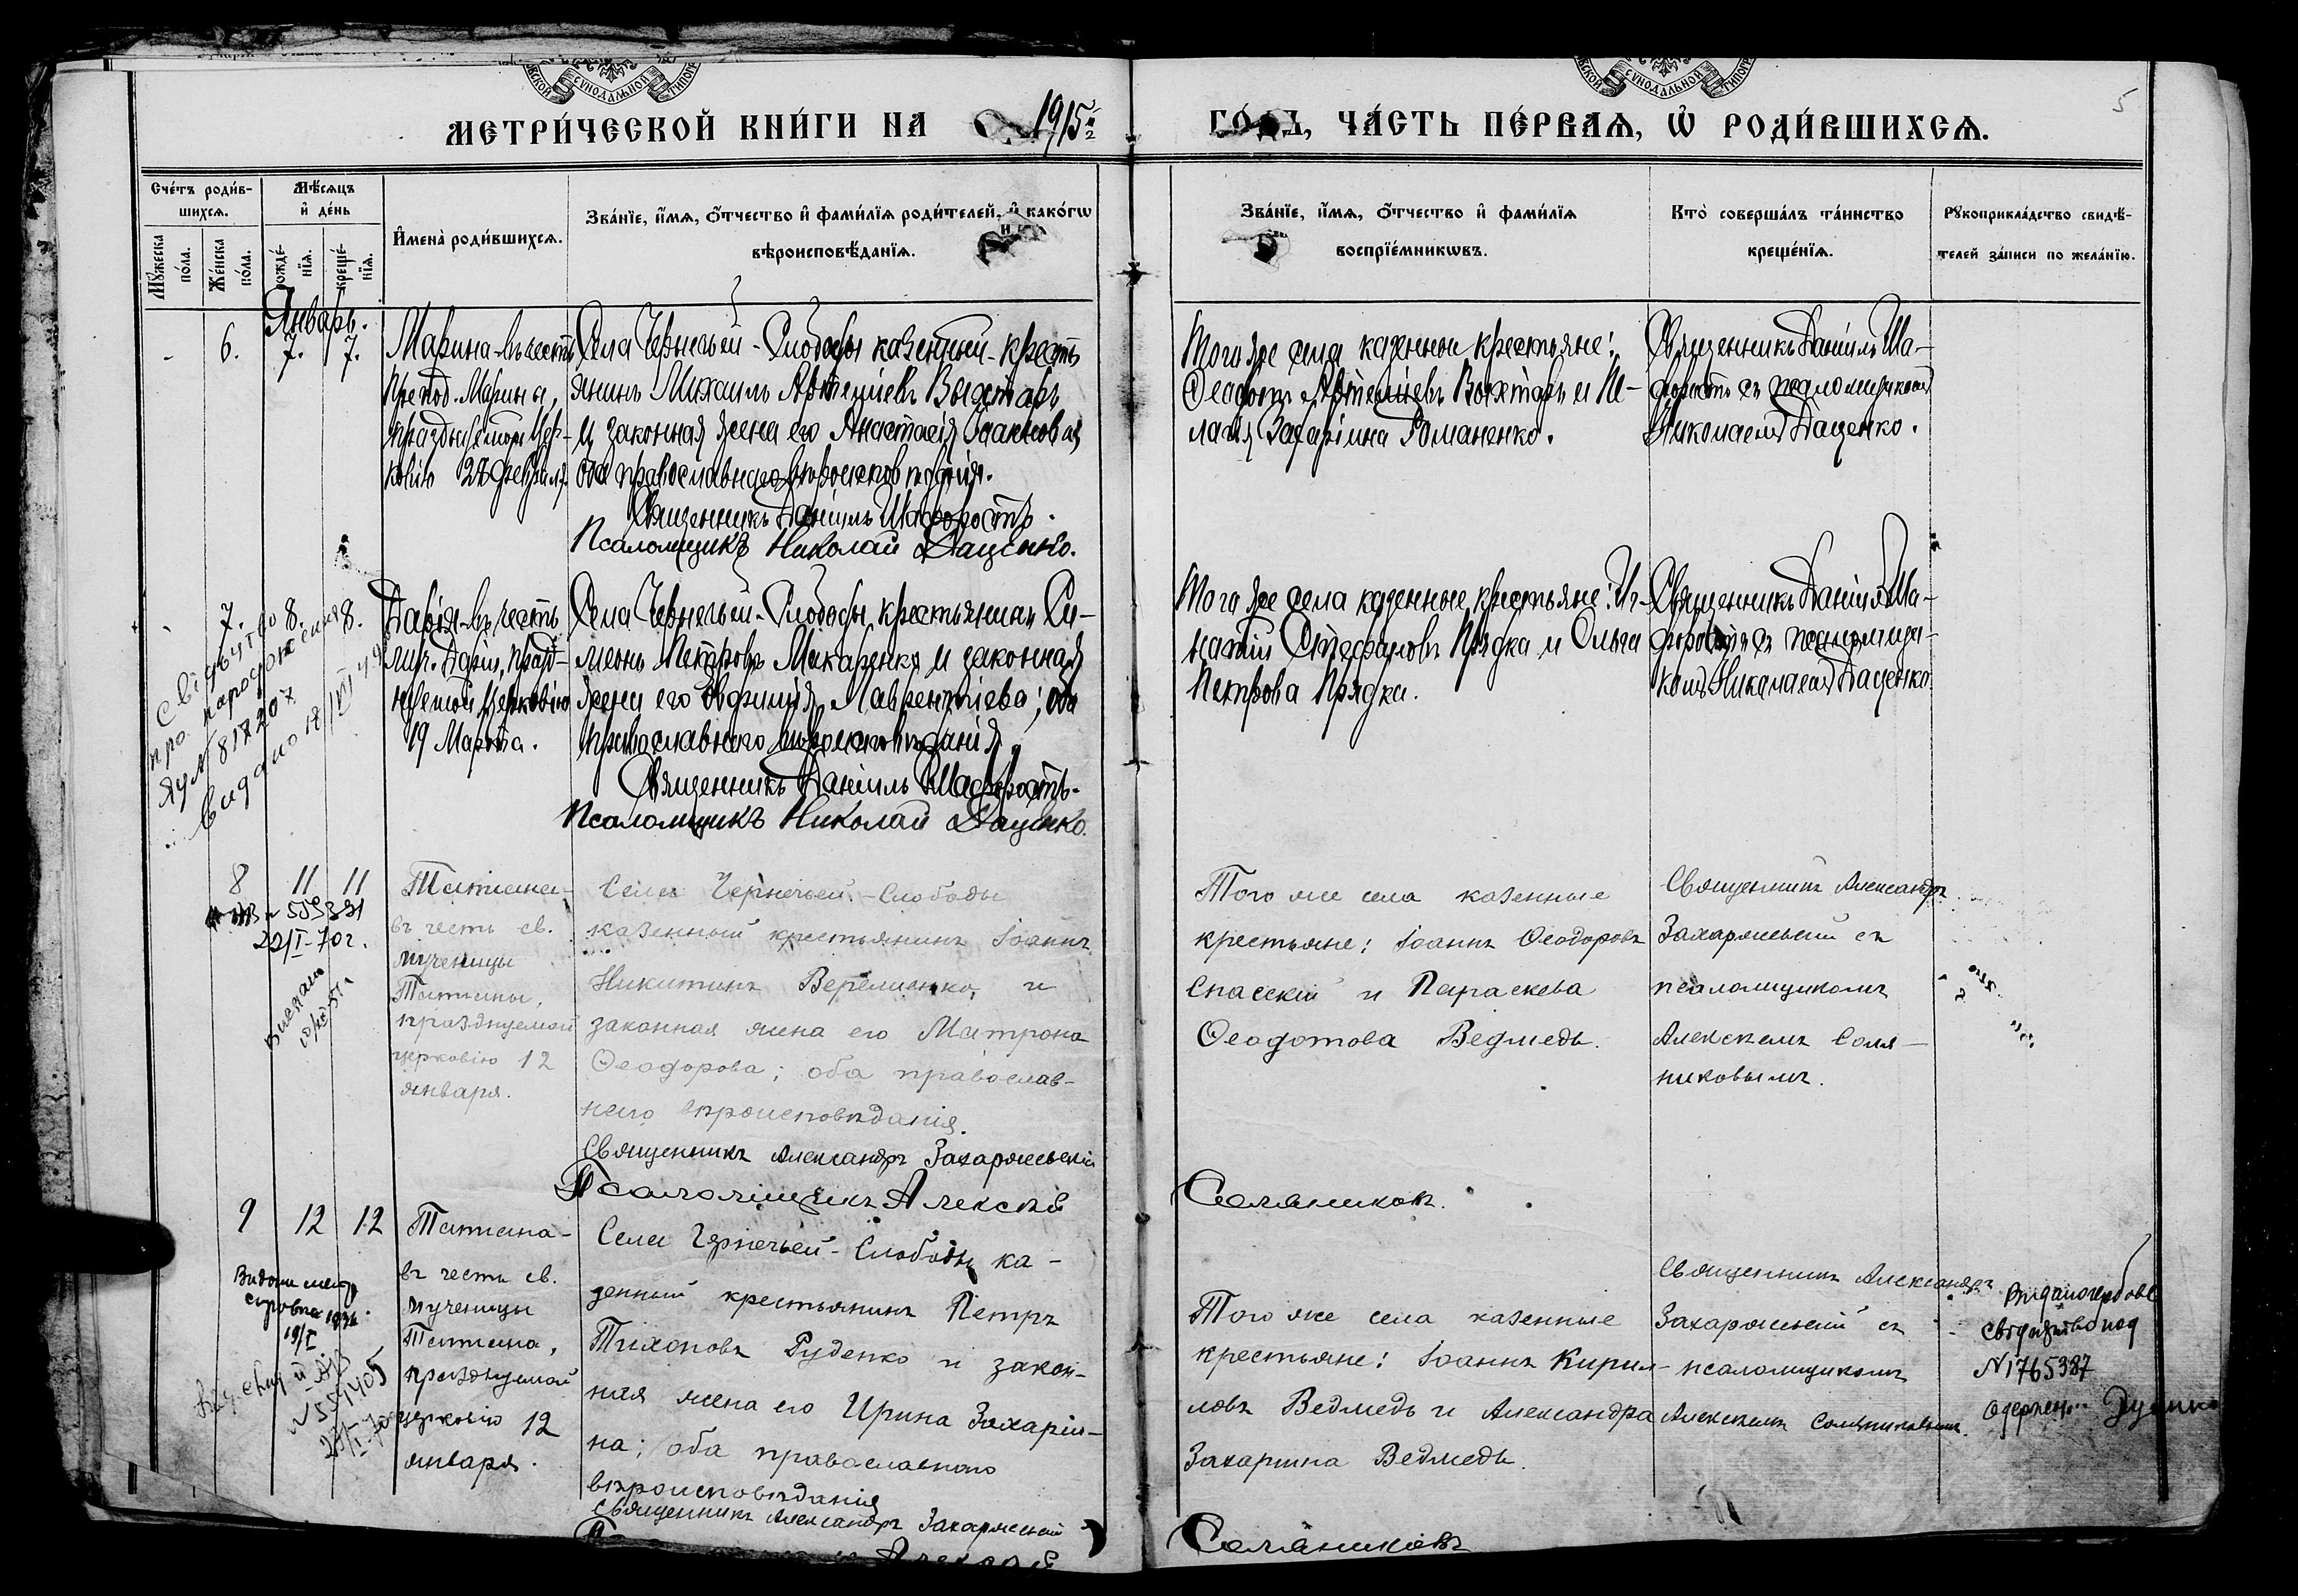 СУНОДАЛЬНОЙ
СУНОДАЛЬНОЙ
5
МЕТРИ́ЧЕСКОЙ КНИ́ГИ НА 1915
ГО́ДЪ, ЧА́СТЬ ПЕ́РВАЯ, Ѡ҆ РОДИ́ВШИХСЯ.
Сче́тъ роди́в-
шихся.
Мѣ́сяцъ
и҆ де́нь
Мꙋ́жеска
по́ла.
Же́нска
по́ла.
рожде́-
нїя.
креще́-
нїя.
И҆мена̀ роди́вшихся.
Зва́нїе, и҆́мя, ѻ҆́тчество и҆ фами́лїя роди́телей, и҆ како́гѡ
вѣроисповѣ́данїя.
Зва́нїе, и҆́мя, ѻ҆́тчество и҆ фами́лїя
воспрїе́мникѡвъ.
Кто̀ соверша́лъ та́инство
креще́нїя.
Рꙋкоприкла́дство свидѣ́-
телей за́писи по жела́нїю.
Январь.
- 6. 7. 7.
Марина-въ честь
Препод. Марины,
празднуемой Цер-
ковію 28 февраля.
Села Чернечьей-Слободы казенный кресть-
янинъ Михаилъ Артеміевъ Выхтарь
и законная жена его Анастасія Іоакимова;
оба православнаго вѣроисповѣданія.
Священникъ Даніилъ Шафоростъ.
Псаломщикъ Николай Даценко.
Того же села казенные крестьяне:
Ѳеодотъ Артеміевъ Выхтарь и Пе-
лагія Захаріина Романенко.
Священникъ Даніилъ Ша-
форостъ съ псаломщикомъ
Николаемъ Даценко.
7. 8. 8.
Свідоцтво
про народження
ЯЦ № 817207
видано
Дарія-въ честь
муч. Даріи, празд-
нуемой Церковію
19 Марта.
Села Чернечьей-Слободы крестьянинъ Си-
меонъ Петровъ Макаренко и законная
жена его Евфимія Лаврентіева; оба
православнаго вѣроисповѣданія.
Священникъ Даніилъ Шафоростъ.
Псаломщикъ Николай Даценко.
Того же села казенные крестьяне: Иг-
натій Стефановъ Прядка и Ольга
Петрова Прядка.
Священникъ Даніилъ Ша-
форостъ съ псаломщи-
комъ Николаемъ Даценко.
8 11 11
22/I-70г.
Татіана-
въ честь св.
мученицы
Татіаны,
празднуемой
церковію 12
января.
Села Чернечьей-Слободы
казенный крестьянинъ Іоаннъ
Никитинъ Веремиенко и
законная жена его Матрона
Ѳеодорова; оба православ-
наго вѣроисповѣданія.
Священникъ Александръ Захаржевскій
Псаломщикъ Алексѣй
Соляниковъ.
Того же села казенные
крестьяне: Іоаннъ Ѳеодоровъ
Спасскій и Параскева
Ѳеодотова Ведмедь.
Священникъ Александръ
Захаржевскій съ
псаломщикомъ
Алексѣемъ Соля-
никовымъ.
9 12 12
19/I
Татіана-
въ честь св.
мученицы
Татіана,
празднуемой
церковію 12
января.
Села Чернечьей-Слободы ка-
зенный крестьянинъ Петръ
Тихоновъ Руденко и закон-
ная жена его Ирина Захаріи-
на; оба православнаго
вѣроисповѣданія
Священникъ Александръ Захаржевскій
Алексѣй
Соляниковъ
Того же села казенные
крестьяне: Іоаннъ Кирил-
ловъ Ведмедь и Александра
Захаріина Ведмедь.
Священникъ Александръ
Захаржевскій съ
псаломщикомъ
Алексѣемъ Соляниковымъ.
№1765387